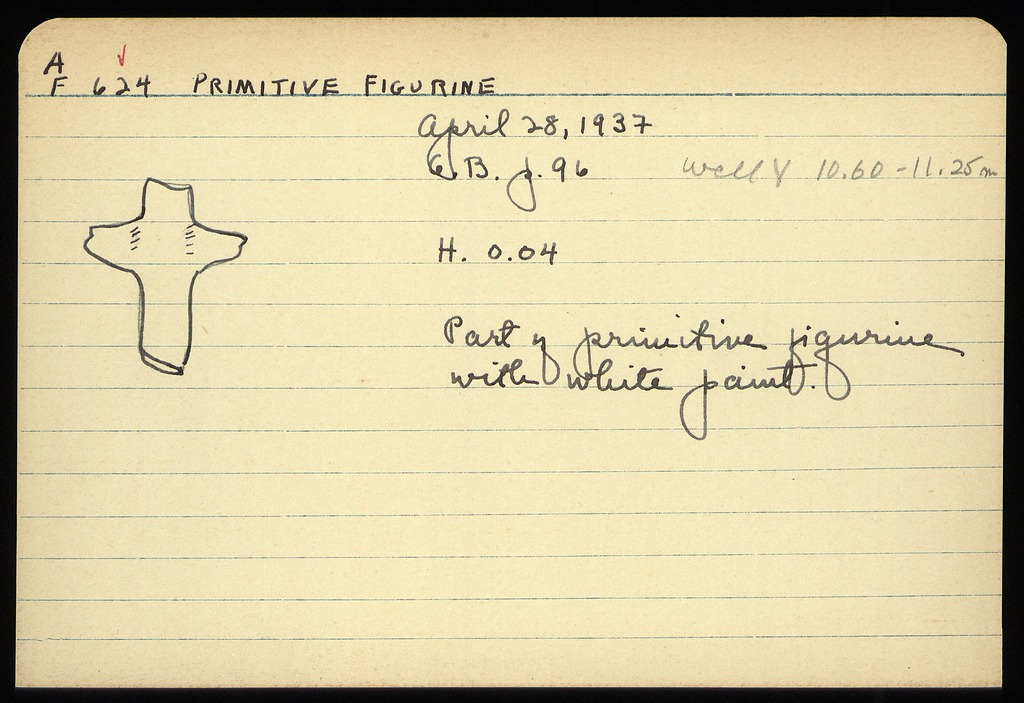 A
F 624 PRIMITIVE FIGURINE
April 28, 1937
B. p. 96
well 10.60 - 11.25 m
H. 0.04
Part of primitive figurine
with white paint.